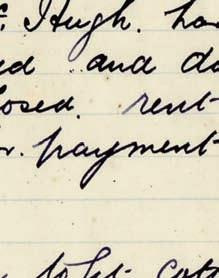 Hugh. ha
ed and da
losed. rent
r. payment
to let